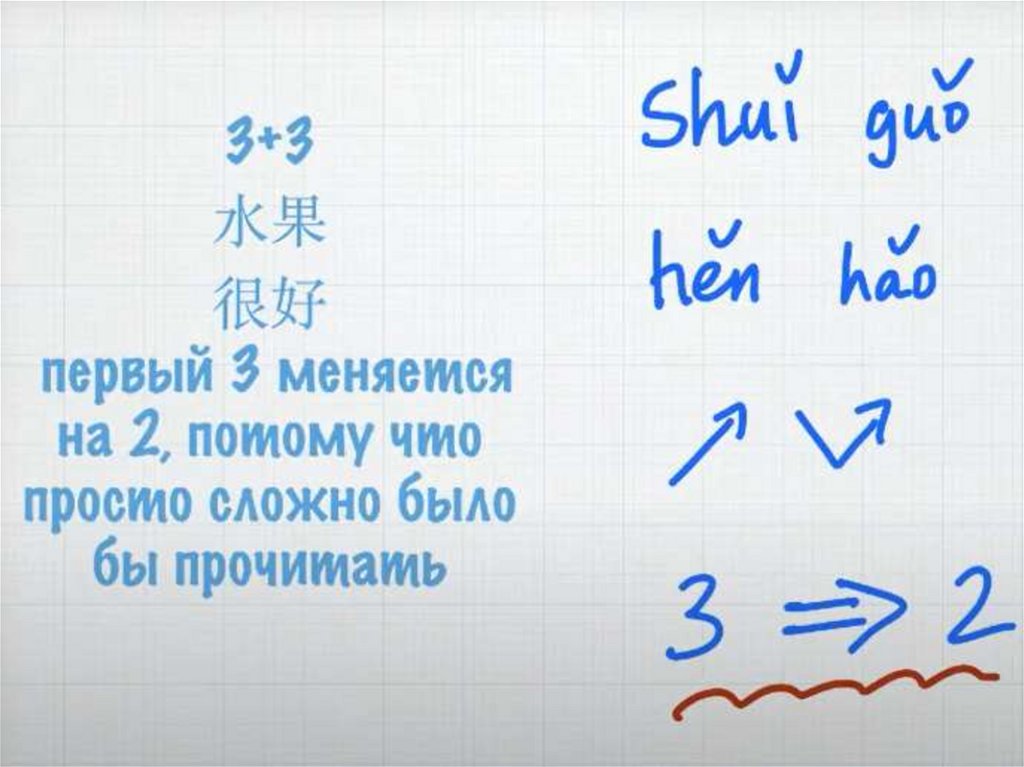 3+3
水果
很好
первый 3 меняется
на 2, потому что
просто сложно было
бы прочитать
Shuǐ guǒ
hěn hǎo
↗ ↘↗
3 ⇒ 2